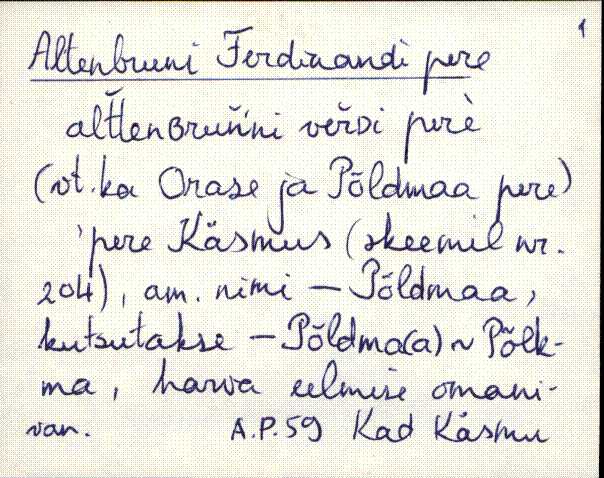 1
Altenbruni Ferdinandi pere
alt̆t̆enʙruň́ni veřᴅi perè
(vt. ka Orase ja Põldmaa pere)
'pere Käsmus (skeemil nr.
204), am. nimi — Põldmaa,
kutsutakse — Põldma(a) ~ Põlk-
ma, harva eelmise omani-
van. A.P.59 Kad Käsmu